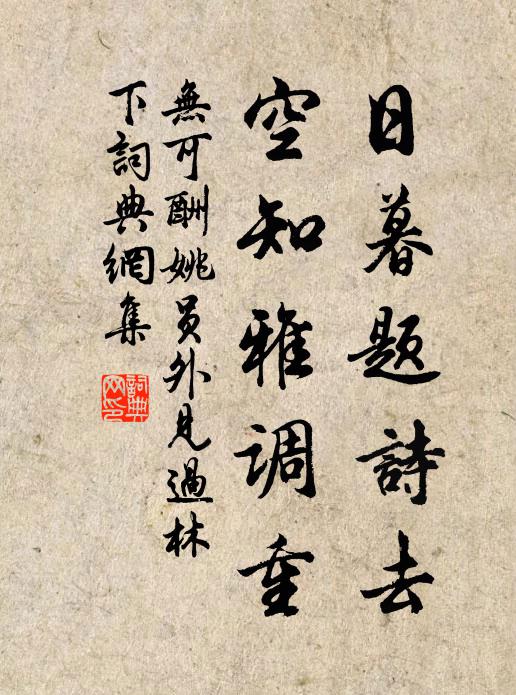 日暮題詩去
空知雅調重
無可酬姚員外見過林
下詞典網集
詞典
网印